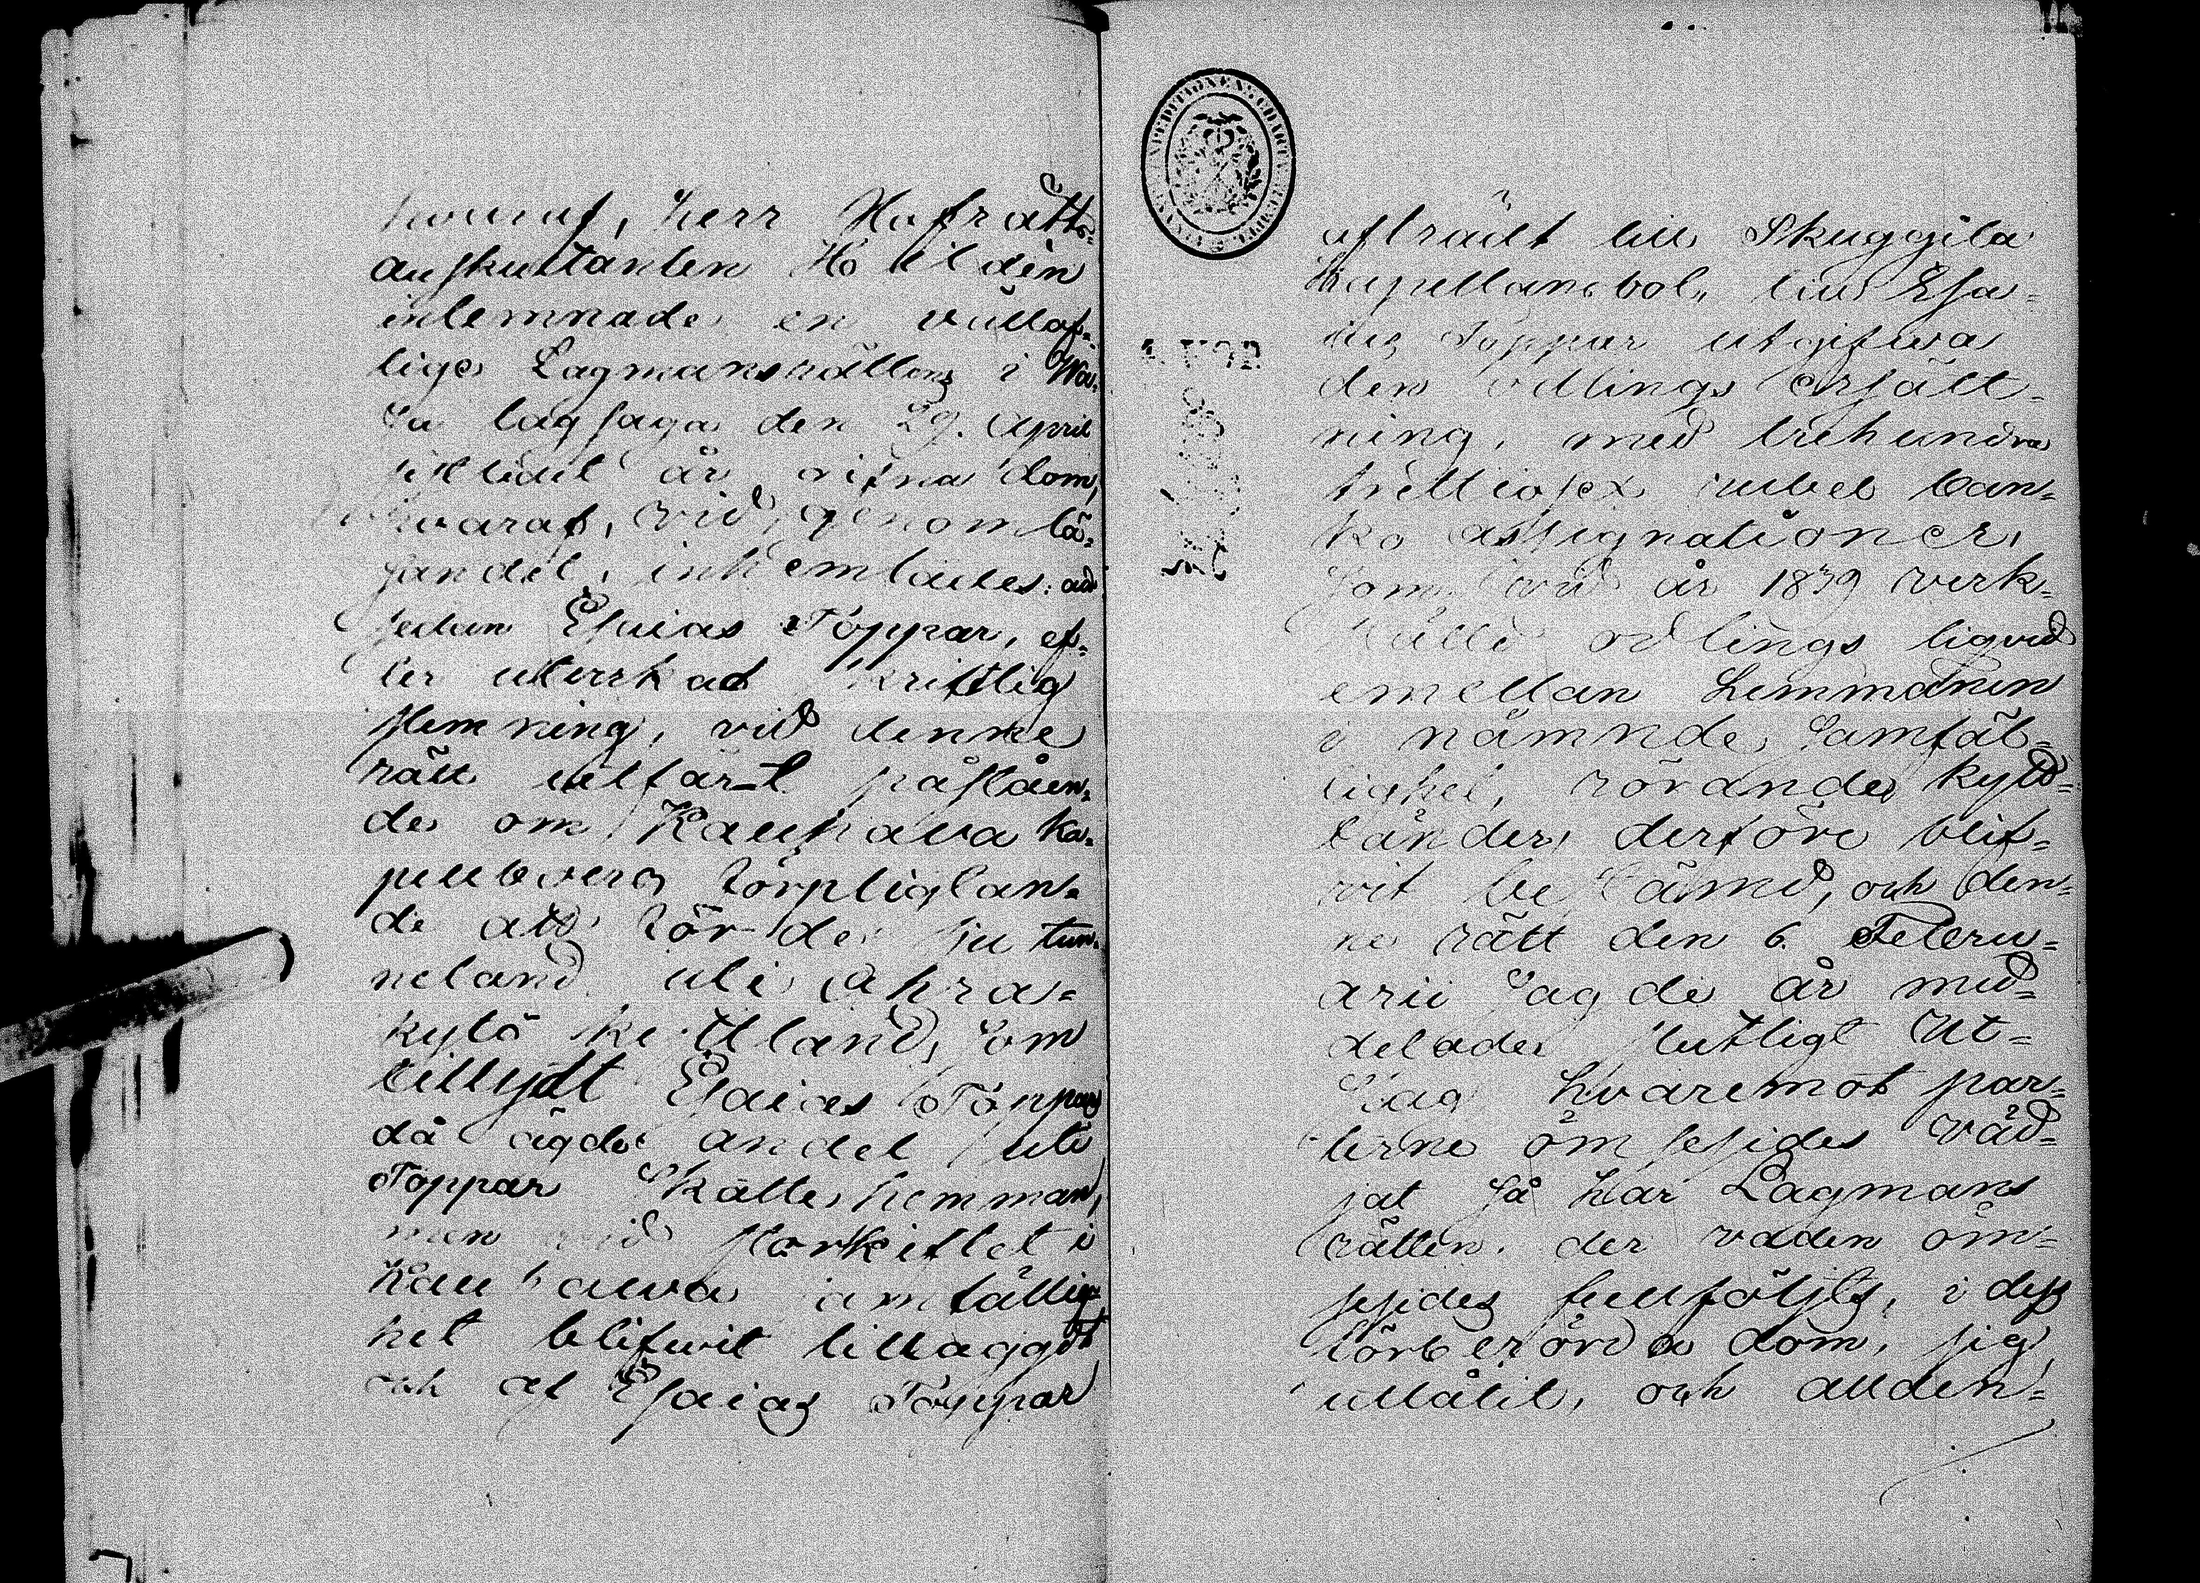 hvaruf, herr Hofrätts-
auskultanten Hoildén
inlemnade en vällof-
lige Lagmansrättens i Wa-
sa lagsaga den 29. April
sistledit år gifna dom,
hvaraf, vid genomlä-
sandet, inhemtades: att
sedan Esaias Töppar, ef-
ter utverkad skriftlig
stemning, vid denne
rätt utfört påståen-
de om Kauhava ka-
pellboers förpligtan-
de att för de sju tun-
neland uti Ahra-
kytö kettland, som
tillydt Esaias Töppars
då ägde andel uti
Töppar Skatte hemman,
men vid storskiftet i
Kauhawa samfällig-
het blifwit tillaggdt
och af Esaias Töppar
afträdt till Skuggila
Kapellansbol, till Esa-
ias Töppar utgifwa
den odlings ersätt-
ning, med trehundra
trettiosex rubel ban-
ko assignationer,
som vid år 1839 verk-
ställd odlings liqvid
emellan hemmanen
i nämnde samfäl-
lighet, rörande kytö-
länder, derföre blif-
vit bestämd, och den-
ne rätt den 6. Febru-
arii sagde år med-
delade slutligt Ut-
slag hvaremot par-
terne ömsesides väd-
jat så har Lagmans
rätten, der vaden öm-
sesides fullföljts, i dess
förberörda dom, sig
utlåtit, och alden-